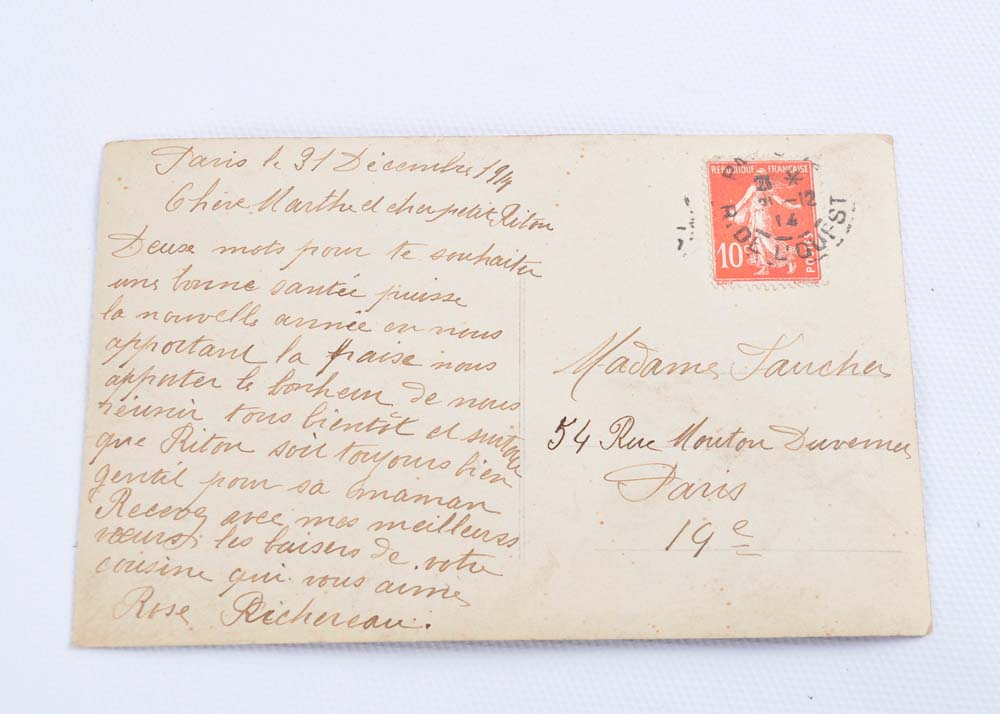 Paris le 31 Décembre 1914
Chère Marthe et cher petit Riton
Deuse mots pour te souhaiter
une bonne santée puisse
la nouvelle année en nous
apportant la paise nous
apporter le bonheur de nous
réunir tous bientôt et surtout
que Riton soit toujours bien
gentil pour sa maman
Receve avec mes meilleurs
vœurs les baisers de votre
cousine qui vous aime
Rose Richereau.
REPUBLIQUE FRANÇAISE
10c
POSTES
31 -12
14
R. DE L'OUEST
Madame Faucher
54 Rue Mouton Duvernet
Paris
19e